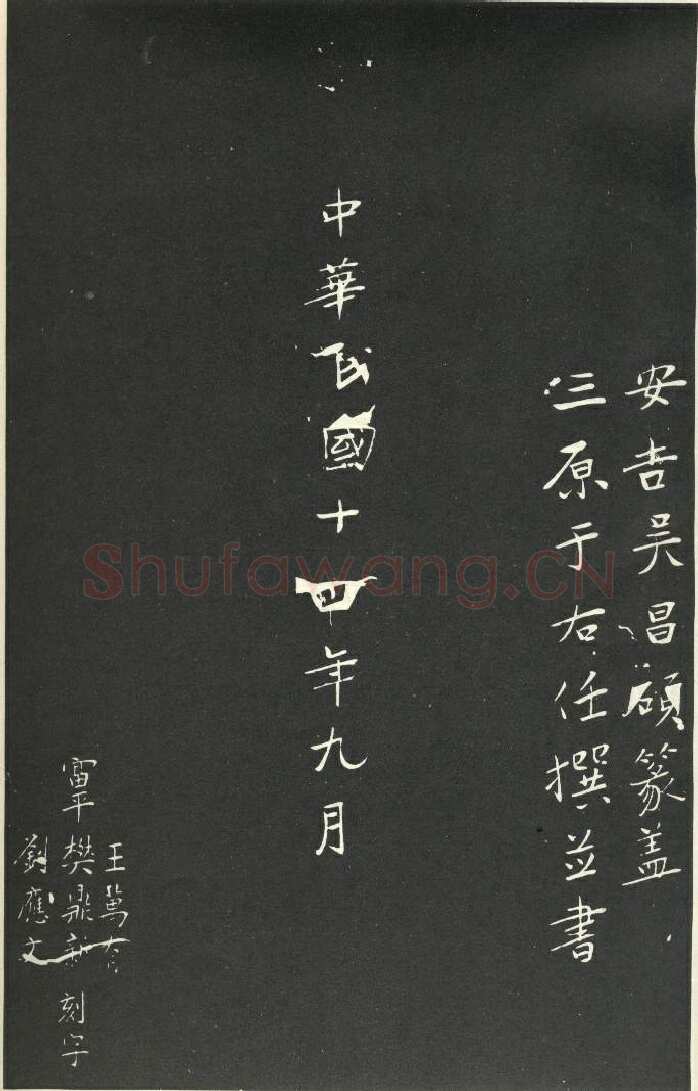 安吉吴昌碩篆盖
三原于右任撰並書
中華民國十四年九月
富平
王萬
樊鼎新
劉應文
刻字
Shufawang.CN